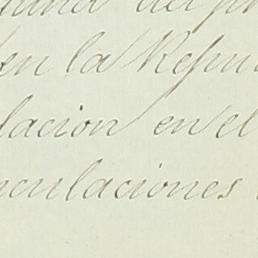 en la Repu
lacion en el
nculaciones